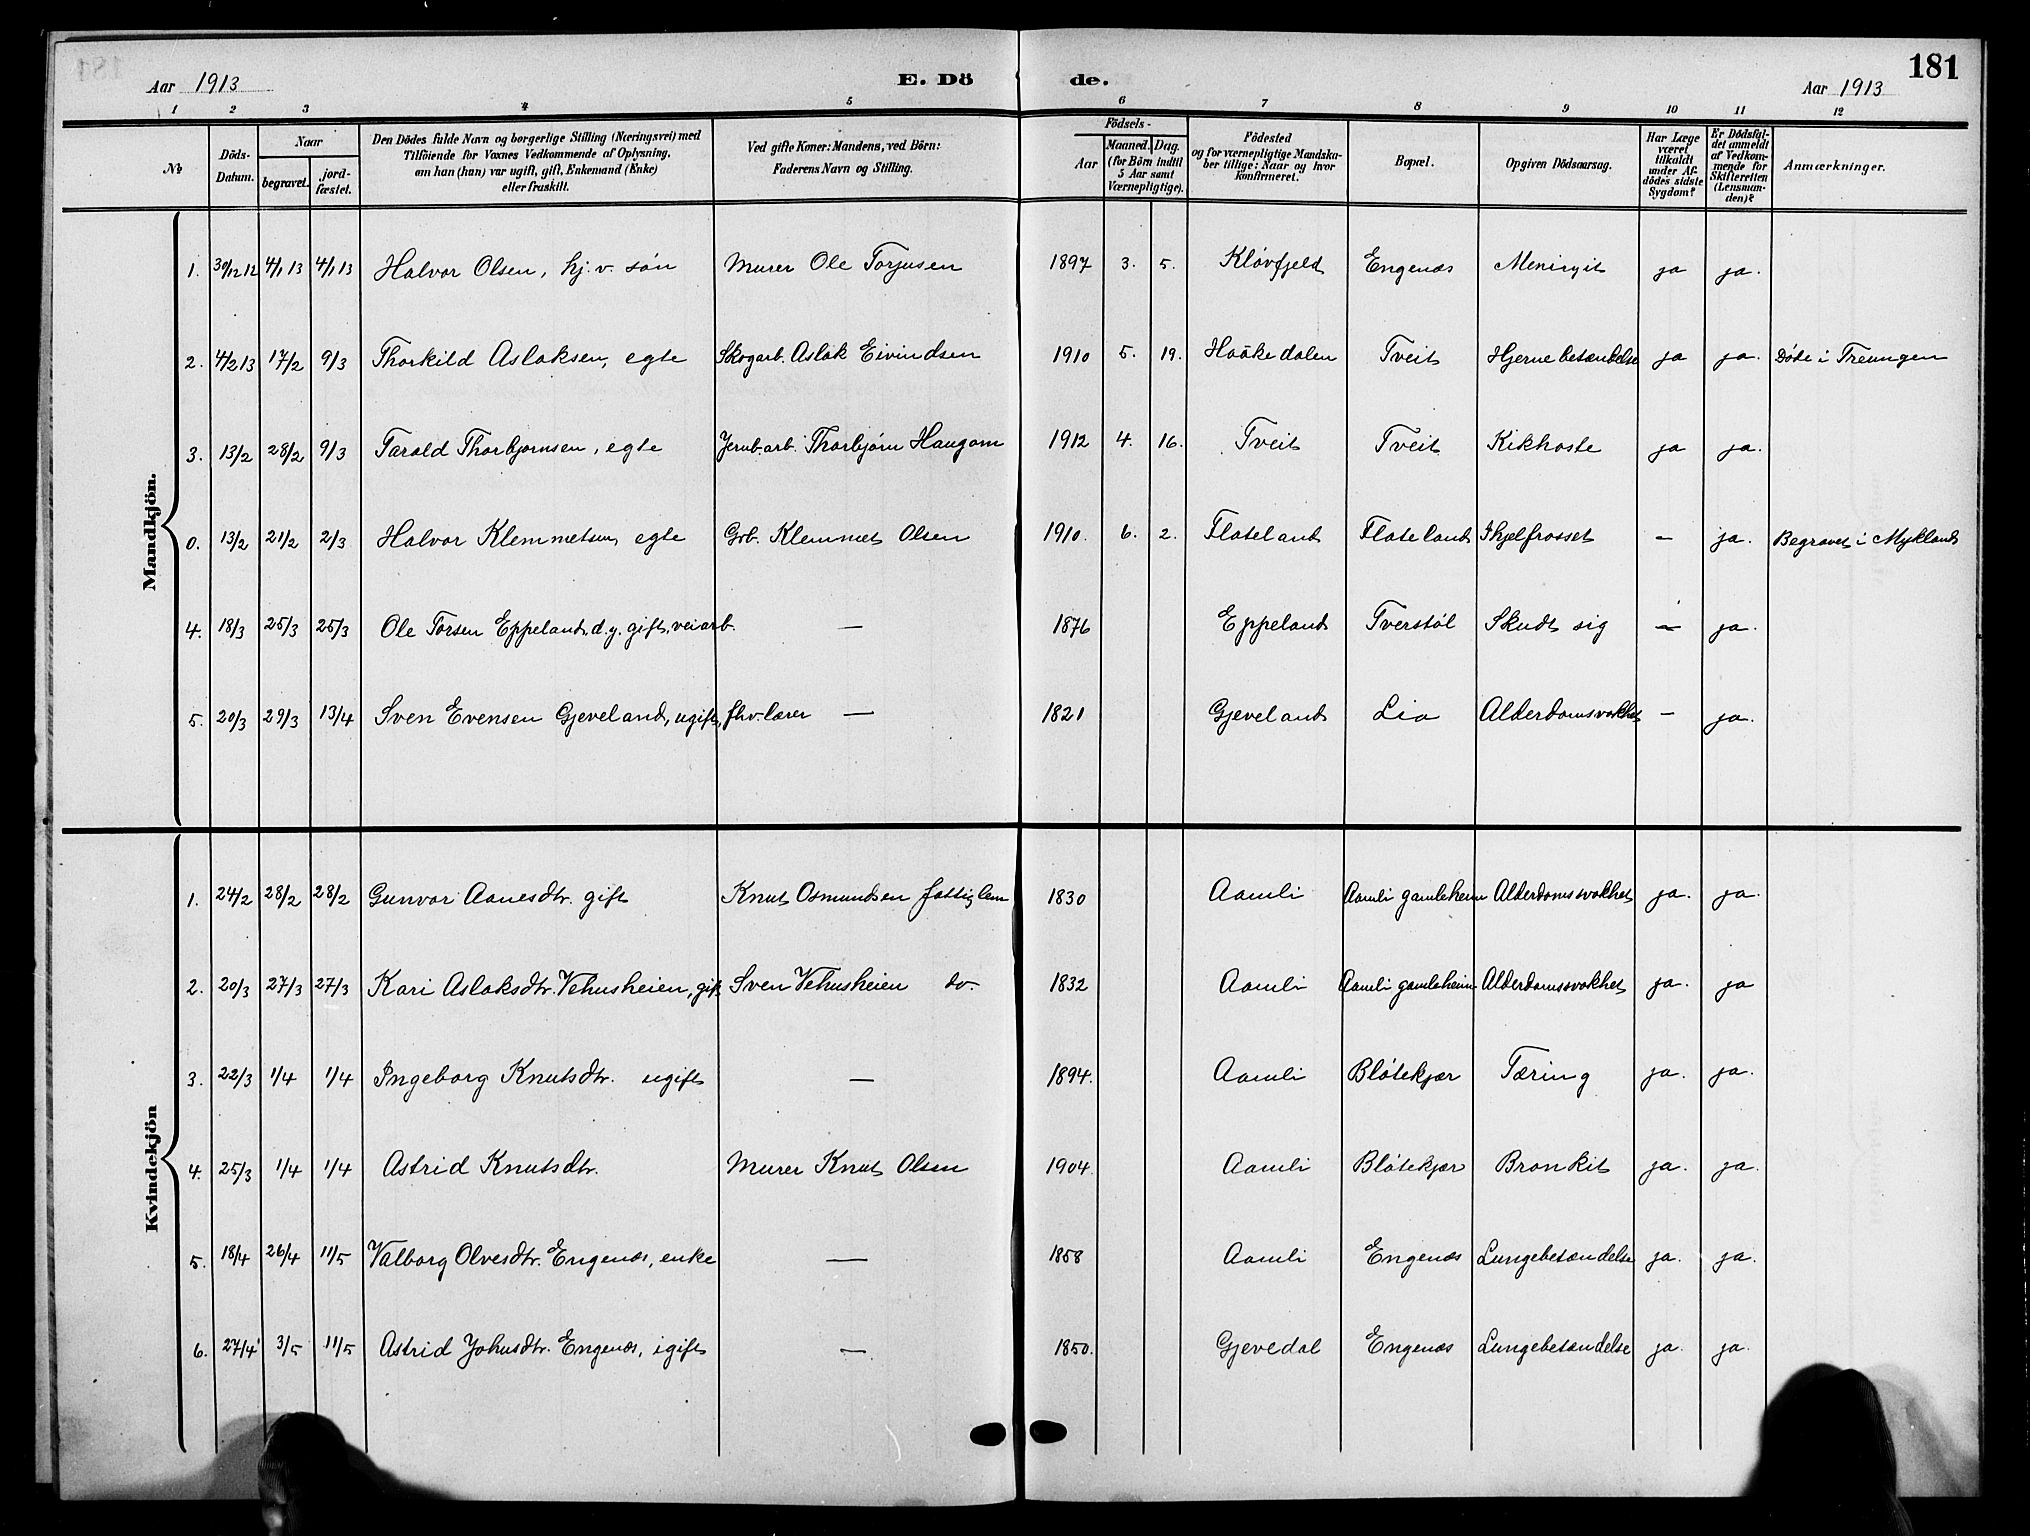 181
Aar 1913 E. Dö de. Aar 1913
1 2 3 4 5 6 7 8 9 10 11 12
No
Döds-Datum.
Naar
begravet.
jord-fæstet.
Den Dödes fulde Navn og borgerlige Stilling (Næringsvei) med
Tilföiende for Voxnes Vedkommende af Oplysning,
om han (hun) var ugift, gift, Enkemand (Enke)
eller fraskilt.
Ved gifte Koner: Mandens, ved Börn:
Faderens Navn og Stilling.
Födsels-
Aar
Maaned. Dag.
(for Börn indtil
5 Aar samt
Værnepligtige).
Födested
og for værnepligtige Mandska-
ber tillige: Naar og hvor
Konfirmeret.
Bopæl.
Opgiven Dödsaarsag.
Har Læge
været
tilkaldt
under Af-
dödes sidste
Sygdom?
Er Dödsfal-
det anmeldt
af Vedkom-
mende for
Skifteretten
(Lensman-
den)?
Anmærkninger.
Mandkjön.
1. 30/12 12 4/1 13 4/1 13 Halvor Olsen, hj. v. søn Murer Ole Torjusen 1897 3. 5. Kløvfjeld Engenæs Meningit ja ja.
2. 4/2 13 17/2 9/3 Thorkild Aslaksen, egte Skogarb. Aslak Eivindsen 1910 5. 19. Haakedalen Tveit Hjernebetændelse ja ja. Døde i Treungen
3. 13/2 28/2 9/3 Tarald Thorbjørnsen, egte Jernb.arb. Thorbjørn Haugom 1912 4. 16. Tveit Tveit Kikhoste ja ja.
0. 13/2 21/2 2/3 Halvor Klemmetsen, egte Grb. Klemmet Olsen 1910. 6. 2. Flateland Flateland Ihjelfrosset - ja. Begravet i Mykland
4. 18/3 25/3 25/3 Ole Torsen Eppeland, d.y. gift, veiarb. — 1876 Eppeland Tverstøl Skudt sig - ja.
5. 20/3 29/3 13/4 Sven Evensen Gjeveland, ugift, fhv. lærer — 1821 Gjeveland Lia Alderdomsvakhet - ja.
Kvindekjön
1. 24/2 28/2 28/2 Gunvor Aanesdtr. gift Knut Osmundsen fattiglem 1830 Aamli Aamli gamleheim Alderdomssvakhet ja. ja.
2. 20/3 27/3 27/3 Kari Aslaksdtr. Vehusheien, gift Sven Vehusheien do. 1832 Aamli Aamli gamleheim Alderdomssvakhet ja. ja
3. 22/3 1/4 1/4 Ingeborg Knutsdtr. ugift — 1894. Aamli Bløtekjær Tæring ja. ja.
4. 25/3 1/4 1/4 Astrid Knutsdtr. Murer Knut Olsen 1904. Aamli Bløtekjær Bronkit ja. ja.
5. 18/4 26/4 11/5 Valborg Olvesdtr. Engenæs, enke — 1858 Aamli Engenæs Lungebetændelse ja. ja.
6. 27/4 3/5 11/5 Astrid Johusdtr. Engenæs, igift — 1850. Gjevedal Engenæs Lungebetændelse ja. ja.